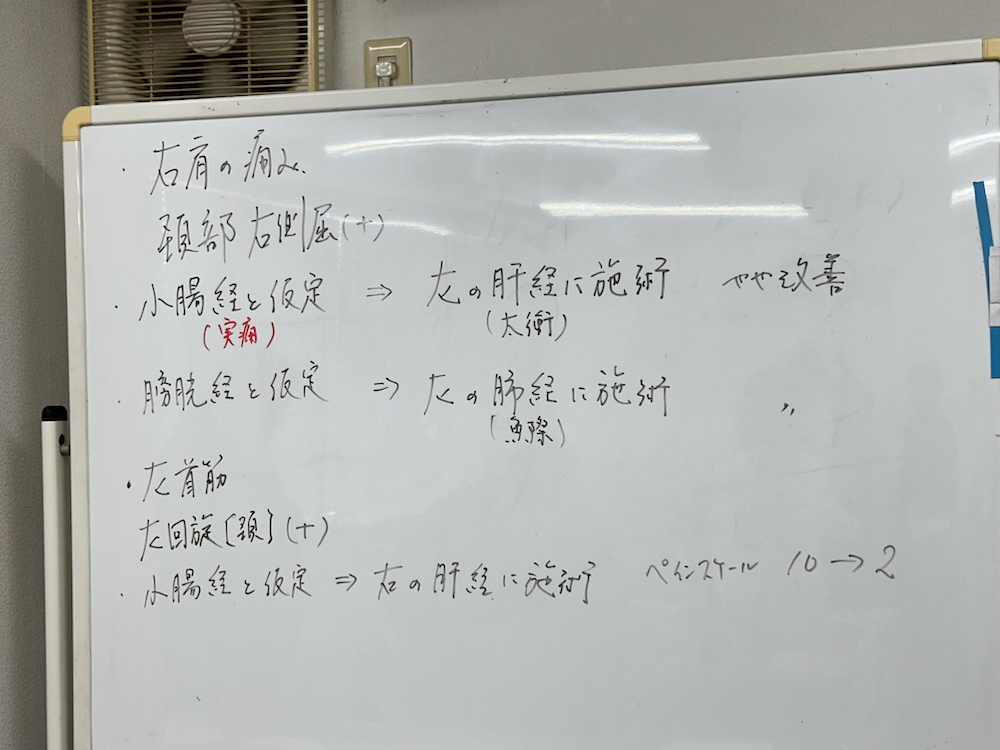 ・右肩の痛み
頚部 右側屈(+)
・小腸経と仮定 ⇒ 左の肝経に施術 やや改善
(実痛) (太衝)
・膀胱経と仮定 ⇒ 左の肺経に施術 〃
(魚際)
・左首筋
左回旋[頚](+)
・小腸経と仮定 ⇒ 右の肝経に施術 ペインスケール 10→2